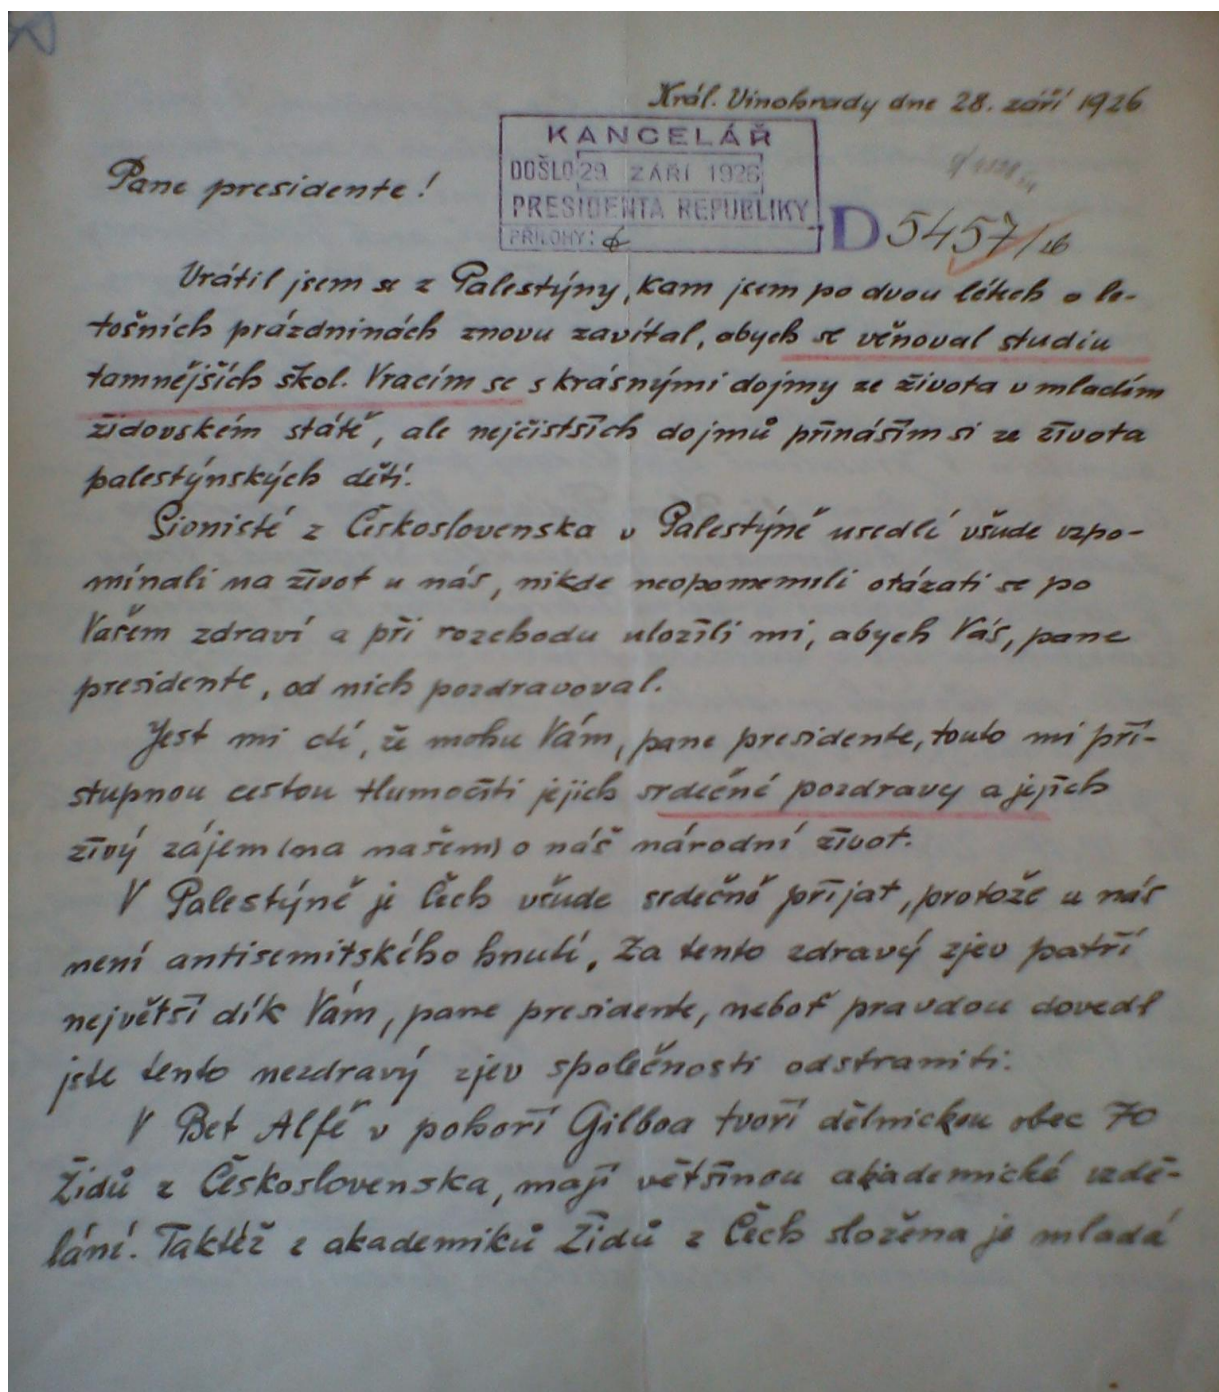 Král. Vinohrady dne 28. září 1926
KANCELÁŘ
DOŠLO 29. ZÁŘÍ 1926
PRESIDENTA REPUBLIKY
PŘÍLOHY:
D 5457/26
Pane presidente!
Vrátil jsem se z Palestýny, kam jsem po dvou létech o le-
tošních prázdninách znovu zavítal, abych se věnoval studiu
tamnějších škol. Vracím se s krásnými dojmy ze života v mladém
židovském státě, ale nejčistších dojmů přináším si ze života
palestýnských dětí.
Sionisté z Československa v Palestýně usedlí všude vzpo-
mínali na život u nás, nikde neopomenuli otázati se po
Vašem zdraví a při rozchodu uložili mi, abych Vás, pane
presidente, od nich pozdravoval.
Jest mi ctí, že mohu Vám, pane presidente, touto mi pří-
stupnou cestou tlumočiti jejich srdečné pozdravy a jejich
živý zájem (na našem) o náš národní život.
V Palestýně je Čech všude srdečně přijat, protože u nás
není antisemitského hnutí. Za tento zdravý zjev patří
největší dík Vám, pane presidente, neboť pravdou dovedl
jste tento nezdravý zjev společnosti odstraniti.
V Bet Alfě v pohoří Gilboa tvoří dělnickou obec 70
Židů z Československa, mají většinou akademické vzdě-
lání. Taktéž z akademiků Židů z Čech složena je mladá